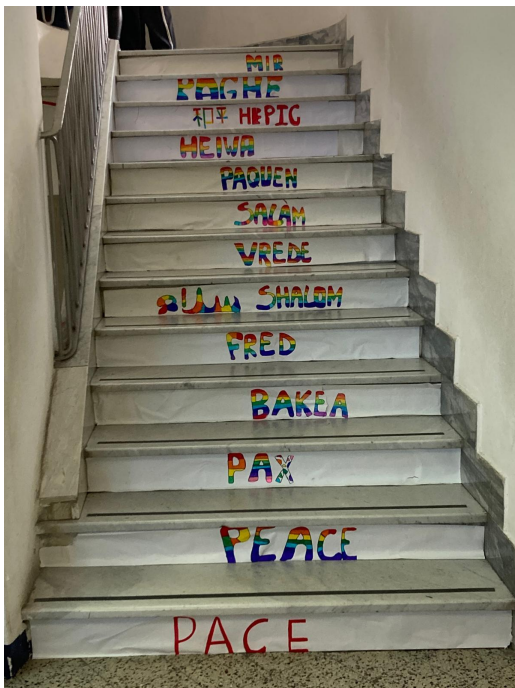 MIR
PAGHE
和平 HEPIC
HEIWA
PAQUEN
SALÀM
VREDE
سلام SHALOM
FRED
BAKEA
PAX
PEACE
PACE